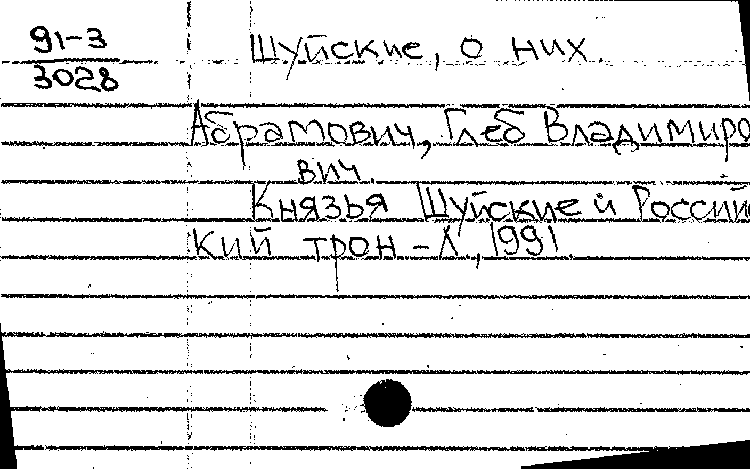 91-3
3028
Шуйские, о них.
Абрамович, Глеб Владимиро
вич.
Князья Шуйские и Россий
кий трон - Л, 1991.